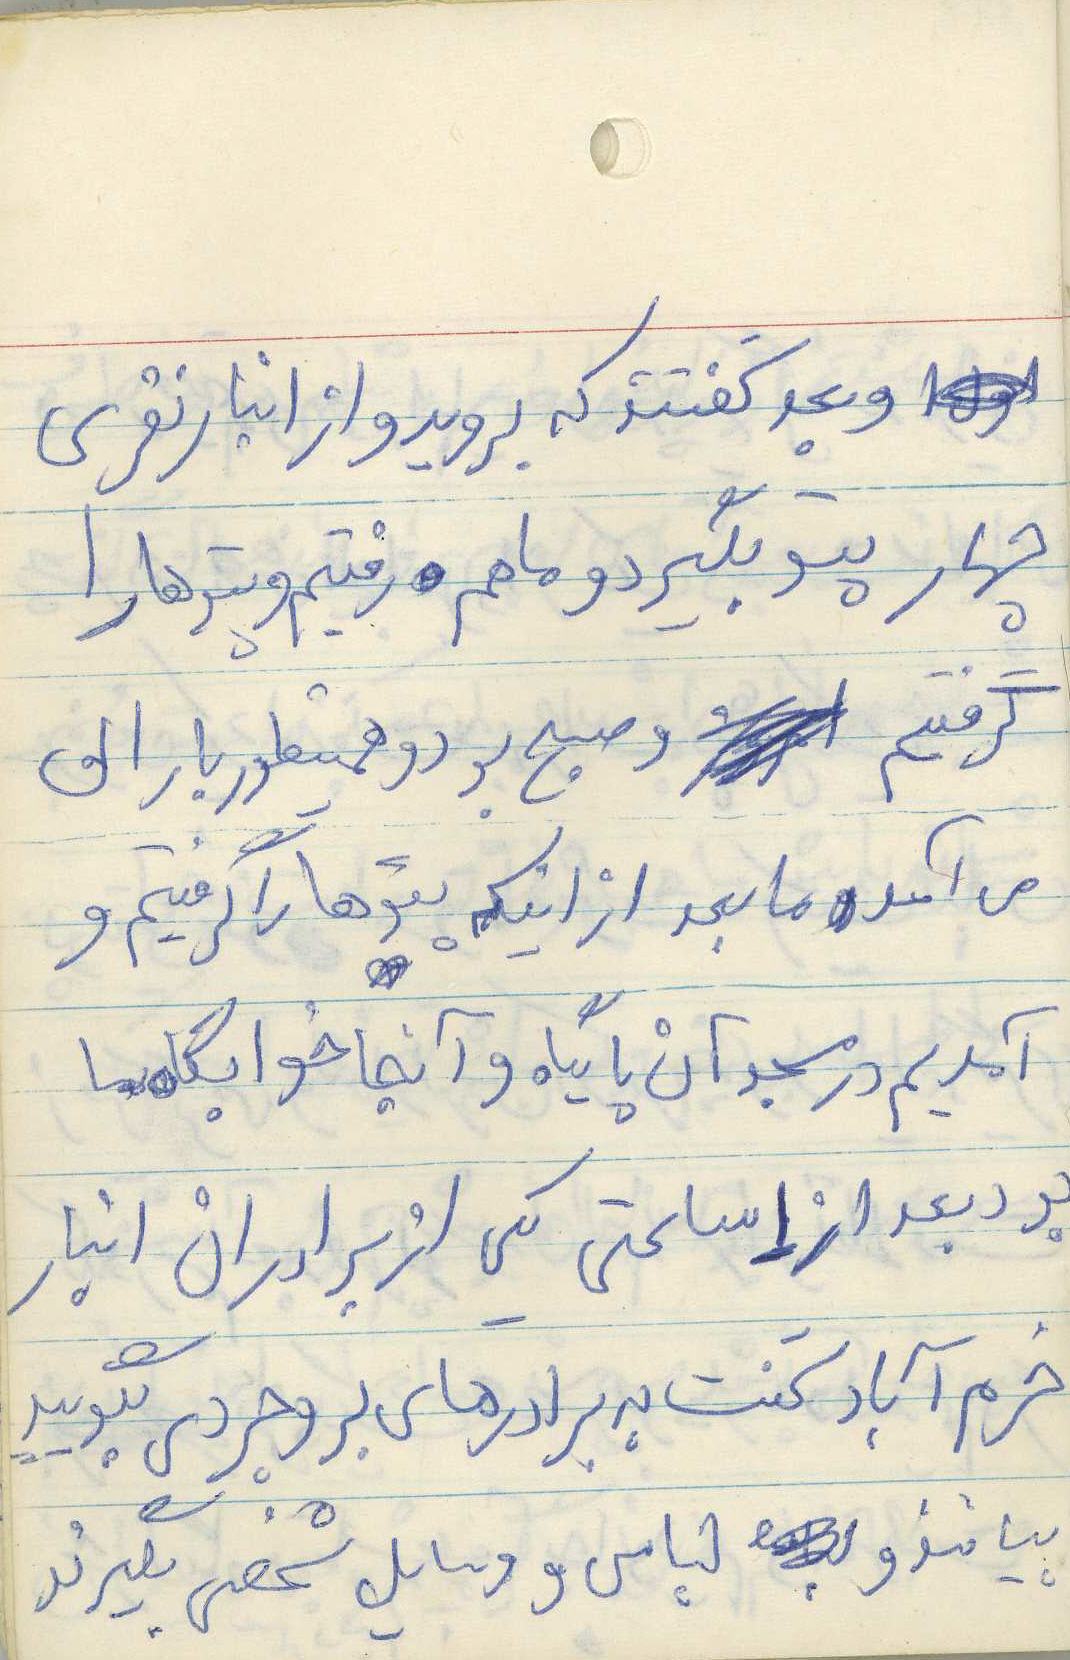 و بعد گفتند که بروید و از انبار نفری
چهار پتو بگیرد و ما هم رفتیم و پتوها را
گرفتیم و صبح بود و همینطور باران
می آمد و ما بعد از اینکه پتوها را گرفتیم و
آمدیم در مسجد آن پایگاه و آنجا خوابگاه ما
بود و بعد از ساعتی یکی از برادران انبار
خرم آباد گفت به برادرهای بروجردی بگویید
بیایند و لباس و وسایل شخصی بگیرند